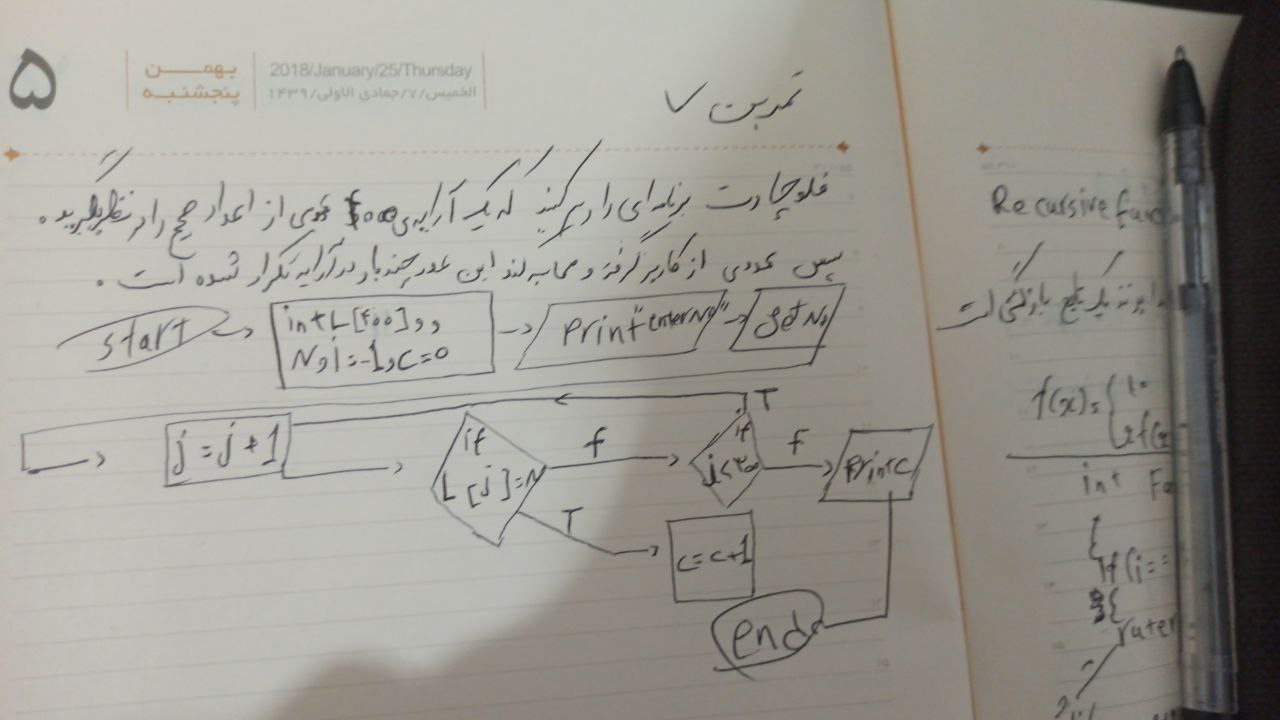 ۵
بهمن
پنجشنبه
2018/January/25/Thursday
الخمیس/۷/جمادی الاولی/۱۴۳۹
تمرین ۷
فلوچارت برنامه‌ای را رسم کنید که یک آرایه‌ی ۴۰۰ عددی از اعداد صحیح را در نظر بگیرید.
سپس عددی از کاربر گرفته و محاسبه کند این عدد چند بار در آرایه تکرار شده است.
start
int L[۴۰۰],,
N,j=-1,c=0
Print "enter No"
get No
j=j+1
if
L[j]=N
f
T
if
j<۴۰۰
T
f
Print c
c=c+1
end
Recursive func
یک تابع بازگشتی است
f(x)=
int Fa
{
if(i==
{
ruter